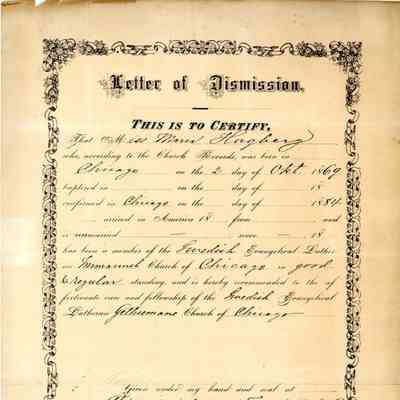 Letter of Dismission.
THIS IS TO CERTIFY,
That Miss Hagberg
who, according to the Church Records, was born in
Chicago on the 2 day of Okt. 1869
baptized in on the day of 18
confirmed in Chicago on the day of 1884
arrived in America 18 from and
is unmarried since 18
has been a member of the Swedish Evangelical Luther-
an Immanuel Church of Chicago in good
& Regular standing, and is hereby recommended to the af-
fectionate care and fellowship of the Swedish Evangelical
Lutheran Gethsemane Church of Chicago
Given under my hand and seal at